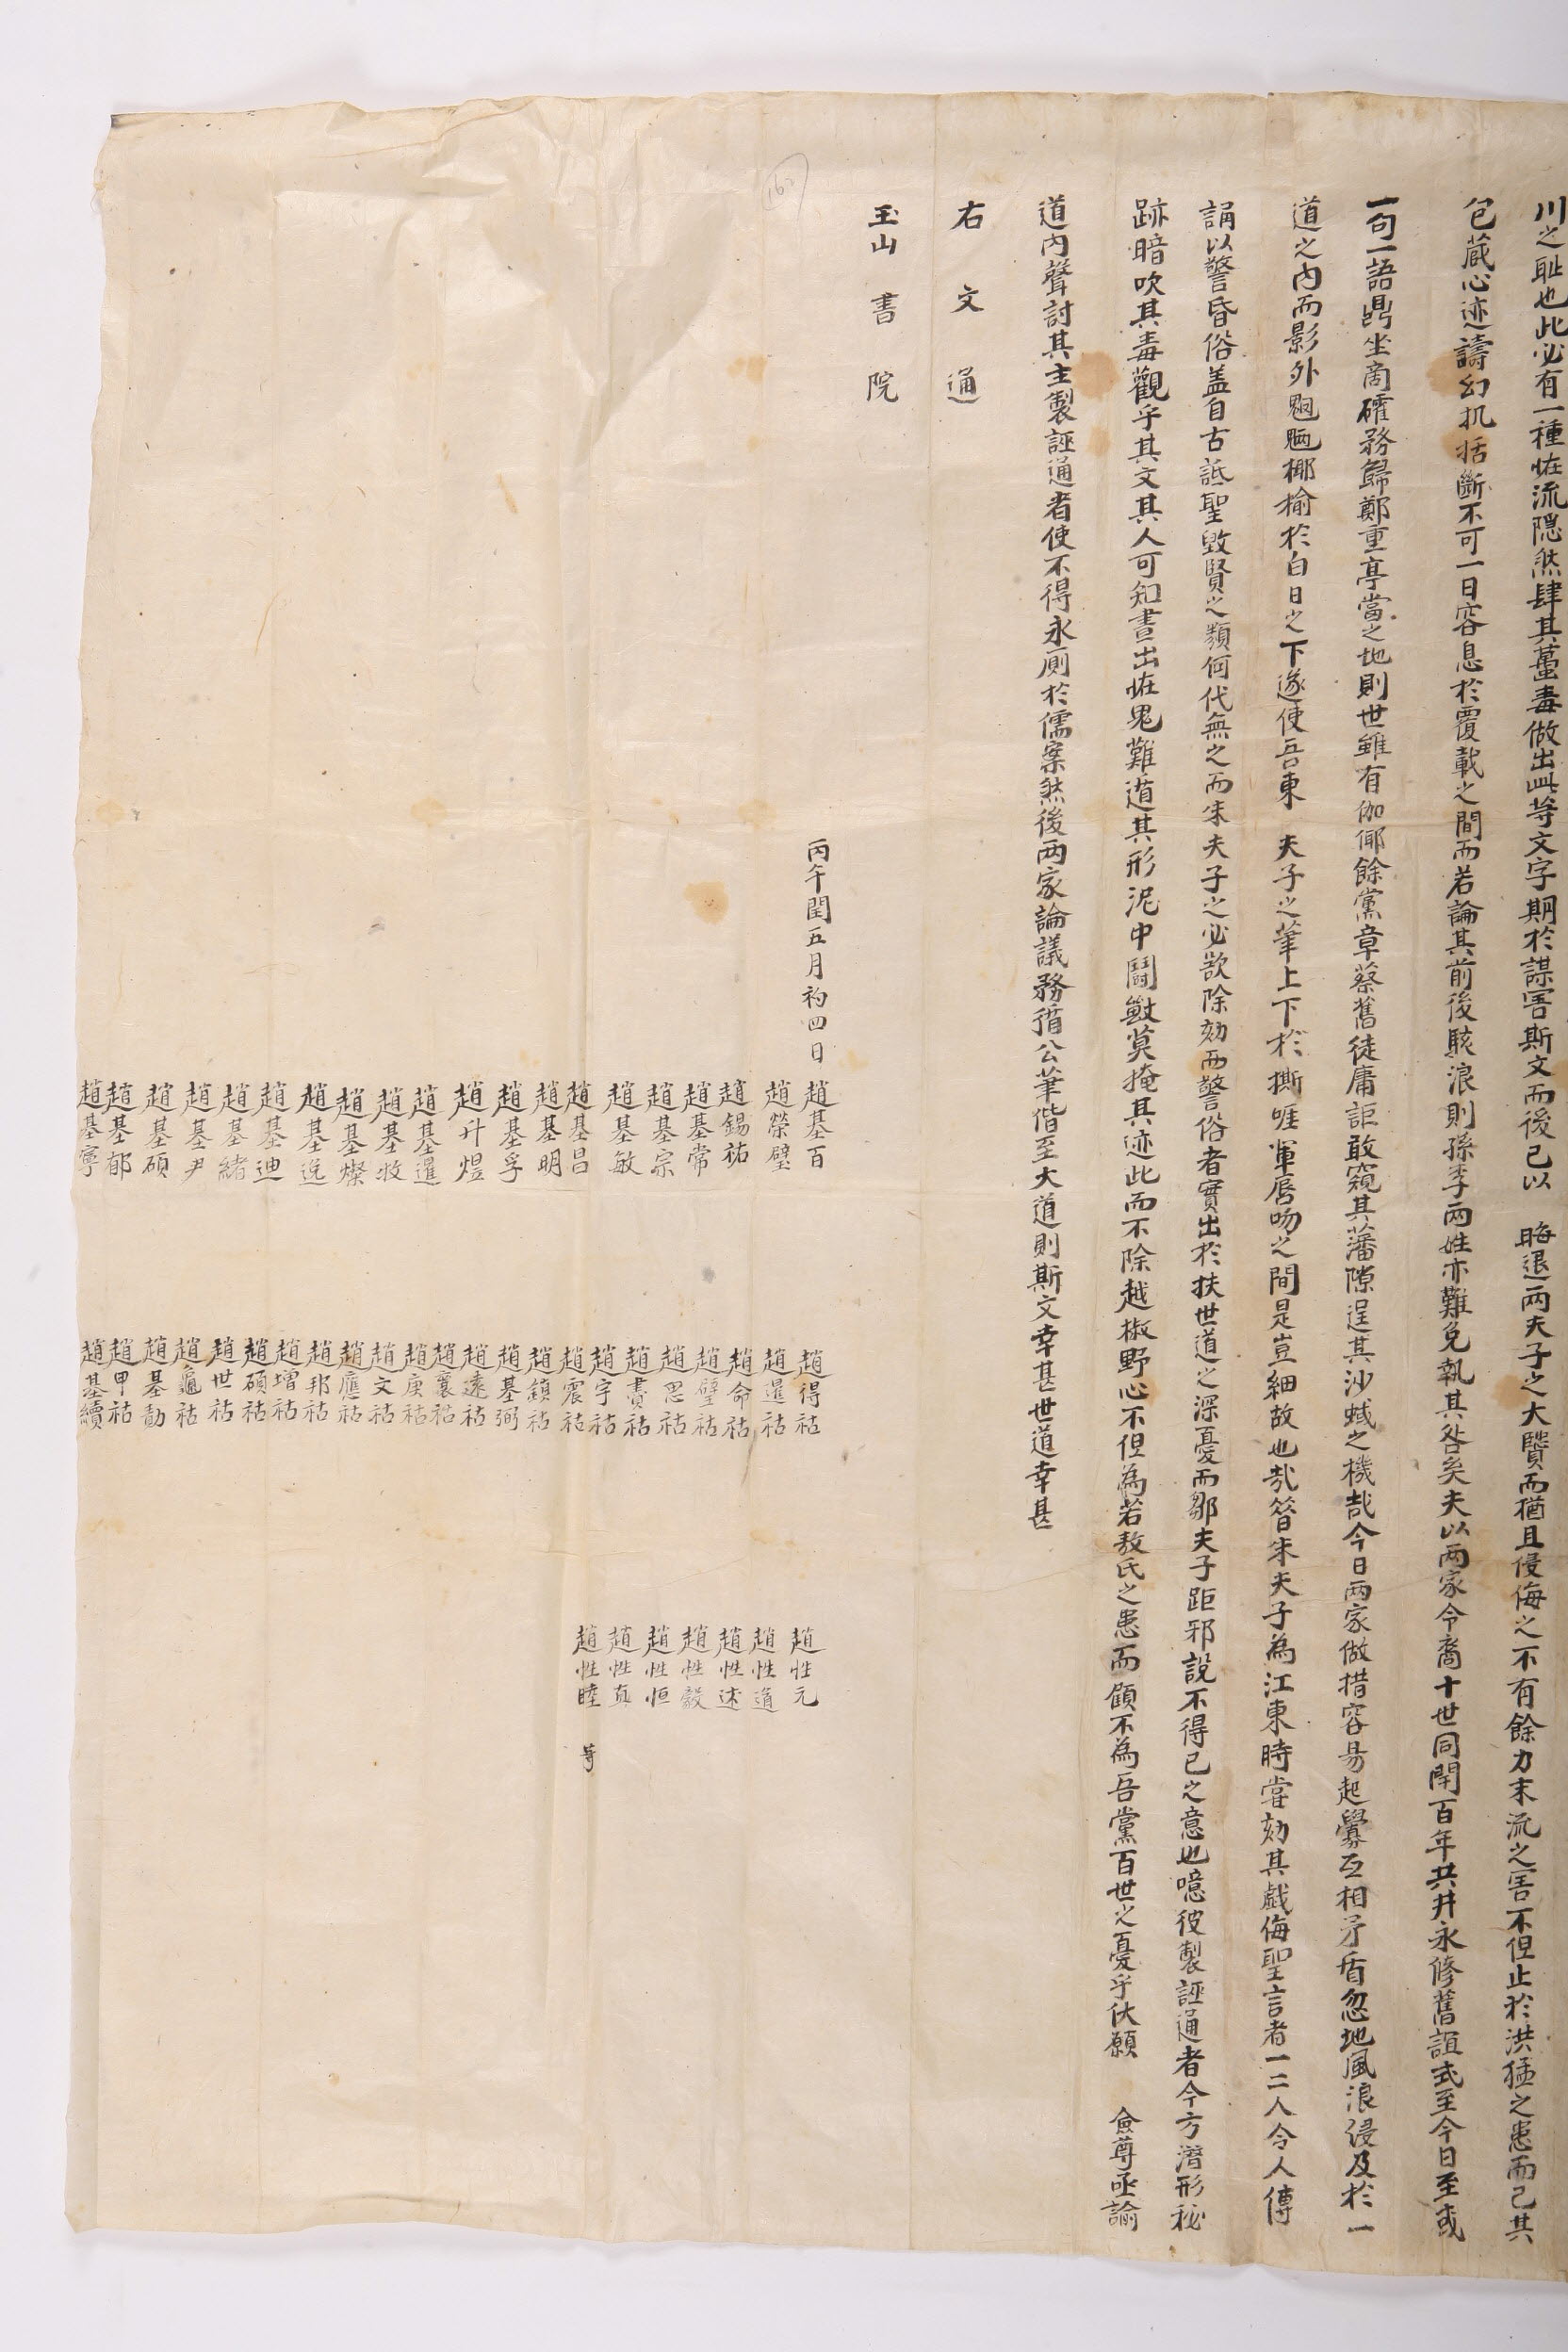 川之耻也此必有一種恠流隱然肆其蠆毒做出此等文字期於謀害斯文而後已以 晦退兩夫子之大賢而猶且侵侮之不有餘力末流之害不但止於洪猛之患而已其
包藏心迹譸幻机括斷不可一日容息於覆載之間而若論其前後駭浪則孫李兩姓亦難免執其咎矣夫以兩家令裔十世同閈百年共井永修舊誼式至今日至或
一句一語鼎坐商確務歸鄭重亭當之地則世雖有伽倻餘黨章蔡舊徒庸詎敢窺其藩隙逞其沙蜮之機哉今日兩家做措容易起釁互相矛盾忽地風浪侵及於一
道之內而影外魍魎椰揄於白日之下遂使吾東 夫子之筆上下於撕啀惲唇吻之間是豈細故也哉昝朱夫子為江東時嘗劾其戱侮聖言者一二人令人傳
誦以警昏俗盖自古詆聖毁賢之類何代無之而朱夫子之必欲除劾而警俗者實出於扶世道之深憂而鄒夫子距邪說不得已之意也噫彼製誣通者今方潛形秘
跡暗吹其毒觀乎其文其人可知晝出恠鬼難道其形泥中鬪獸莫掩其迹此而不除越椒野心不但為若敖氏之患而顧不為吾黨百世之憂乎伏願 僉尊亟諭
道內聲討其主製誣通者使不得永厠於儒案然後兩家論議務循公筆偕至大道則斯文幸甚世道幸甚
右文通
玉山書院
丙午閏五月初四日
趙基百
趙榮璧
趙錫祐
趙基常
趙基宗
趙基敏
趙基昌
趙基明
趙基孚
趙升煜
趙基暹
趙基牧
趙基燦
趙基逵
趙基迪
趙基緖
趙基尹
趙基碩
趙基郁
趙基寧
趙得祜
趙暹祜
趙命祜
趙璧祜
趙思祜
趙賚祜
趙宇祜
趙震祜
趙鎭祜
趙基弼
趙遠祜
趙襄祜
趙庚祜
趙文祜
趙應祜
趙邦祜
趙增祜
趙碩祜
趙世祜
趙龜祜
趙基勣
趙甲祜
趙基續
趙性元
趙性道
趙性述
趙性毅
趙性恒
趙性眞
趙性睦 等